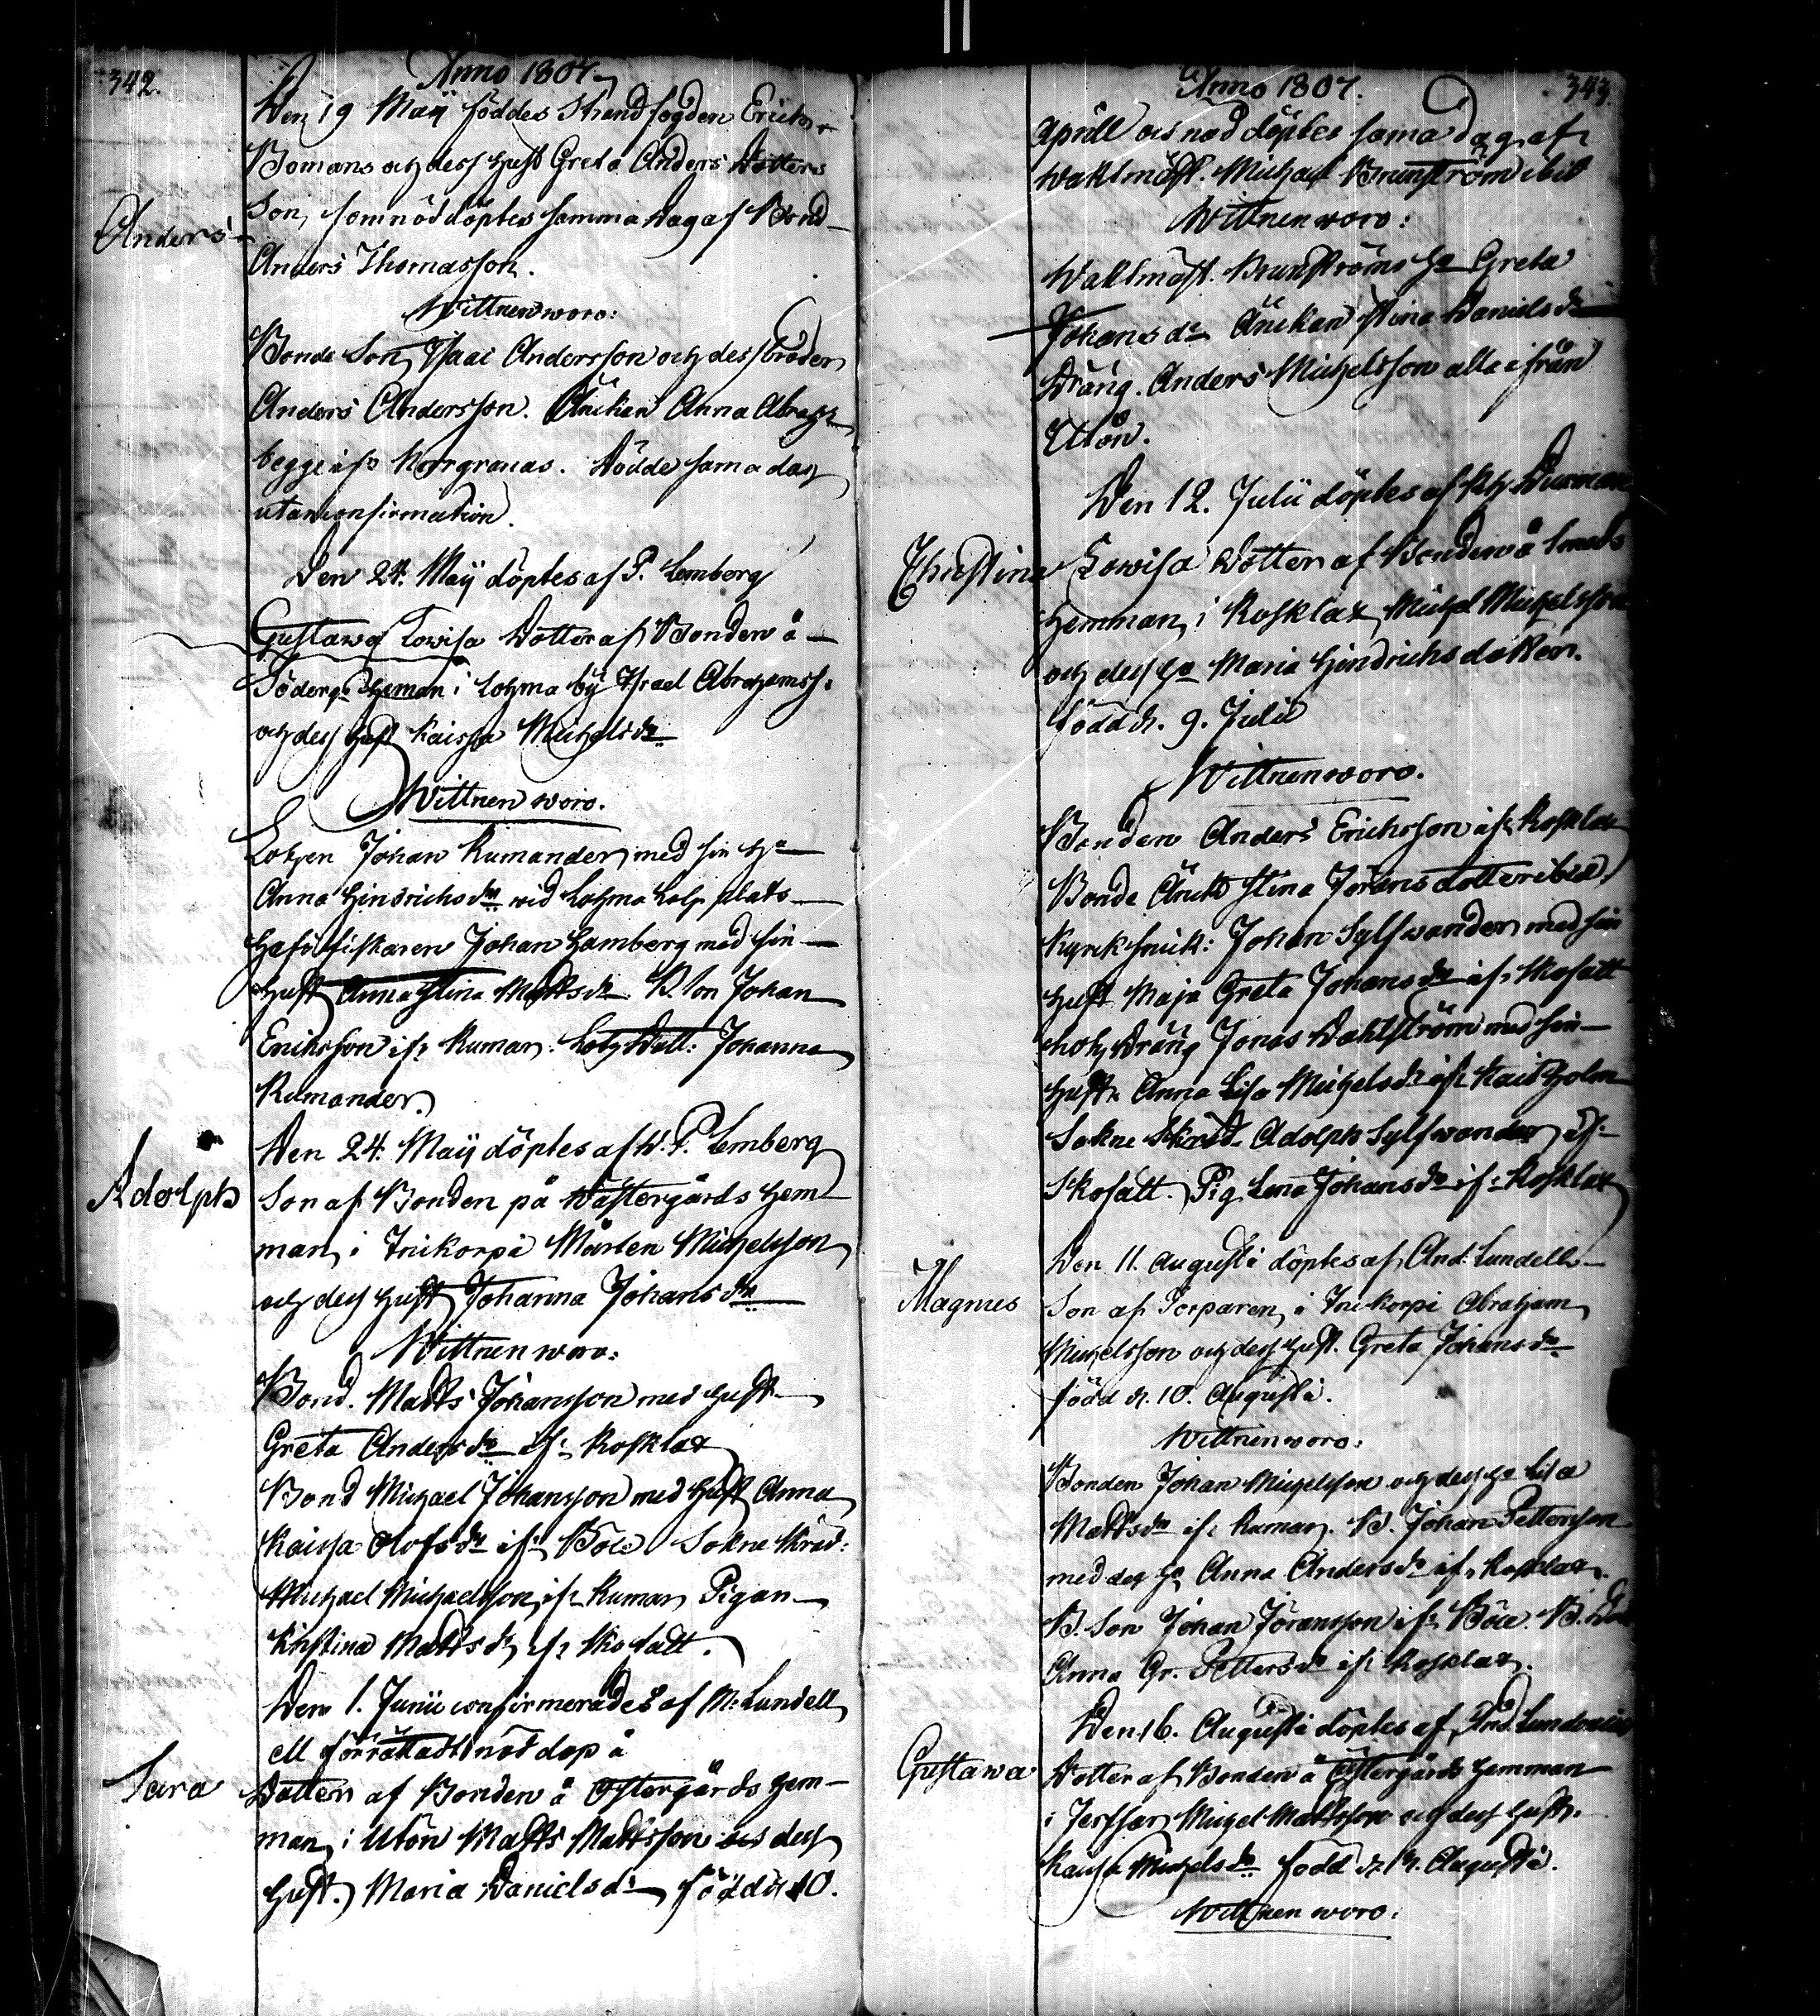 342.
Anno 1807
Den 19 Maÿ föddes Strandfogden Erich
Bomans och dess Hust Greta Anders dotters
Anders
Son, som nöddöptes samma dag af Bond
Anders Thomasson.
Wittnen woro:
Bonde Son, Isaac Andersson och dess broder
Anders Andersson. Änckan Anna Abrah
begge ifr Norrgranas. Dödde sama dag
utan confirmation.
Den 24. Maÿ döptes af P. Lemberg
Gustawa Lowisa Dotter af Bonden å
Söderg Heman i Lohma bÿ Israel Abrahamss:
och dess Hust Kaissa Michelsdr
Wittnen woro.
Lotzen Johan Rumander med sin Ha
Anna Hindrichsdr wid Lohma Lots plats
Hafsfiskaren Johan Hamberg med sin
Hust Anna Stina Mattsdr. B. Son Johan
Ericksson ifr Rumar: Lotz Dott: Johanna
Rumander.
Den 24. Maÿ döptes af W. P. Lemberg
Adolph
Son af Bonden på Wästergårds Hem
man, i Inikorpå Mårten Michelsson
och dess Hust Johanna Johansdr
Wittnen woro:
Bond. Matts Johansson med Hust
Greta Andersdr ifr Rosklax
Bond Michael Johansson med Hust Anna
Kaissa Olofsdr ifr Böle Sokne Skräd:
Michael Michaelsson, ifr Rumar Pigan
Kristina Mattsdr ifr Skofatt.
Den 1. Junii confirmerades af M. Lundell
ett förrättadt nöd dop å
Sara
Dotter af Bonden å Östergårds Hem
man, i Utön Matts Mattsson och dess
Hust. Maria Danielsdr, född d 10.
343.
Anno 1807.
Aprill och nöd döptes sama dag af
Waktmäst. Michael Brunström ibid
Wittnen woro:
Waktmäst. Brunströms Ha Greta
Johansdr Änckan Stina Danielsdr
Dräng. Anders Michelsson alla ifrån
Utön.
Den 12. Julii döptes af
Christina Lowisa Dotter af Bonden å Smeds
Hemman, i Rosklax, Michel Michelsson
och dess Ha Maria Hindrichs dotter.
född d. 9. Julii
Wittnen woro.
Bonden Anders Erichsson ifr Rosklax
Bonde Änck Stina Jörans dotter ibid.
Kyrck snick: Johan Sylfwander med sin
Hust Maja Greta Johansdr ifr Skofatt
Dräng Jonas Dahlström med sin
Hust. Anna Lisa Michelsdr ifr Kaitholm
Sokne Skräd Adolph Sylfwander ifr
Skofatt. Pig Lena Johansdr ifr Rosklax
Den 11. Augusti döptes af And. Lundell
Magnus
Son af Torparen, i Inikorpå Abraham
Michelsson och dess Hust. Greta Johansdr
född d. 10. Augusti.
Wittnen woro:
Bonden Johan Michelsson och dess Ha Lisa
Mattsdr ifr Rumar. B. Johan Pettersson
med dess Ha Anna Andersdr ifr Rosklax.
B. Son Johan Jöransson ifr Böle. B.
Anna Gr. Pettersdr ifr Rosklax.
Den 16. Augusti döptes af And.
Gustawa
Dotter af Bonden å Östergårds Hemman
i Michel Mattsson och dess Hust.
Kaisa Michelsdr född d. 13. Augusti.
Wittnen woro: